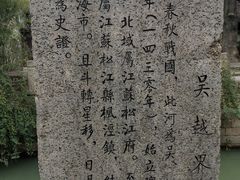 吳越界
春秋戰國,此河為吳
年(一四三〇年),始立
北域屬江蘇松江府。至
屬江蘇松江縣楓涇鎮,
海市。且斗轉星移,日月
為史證。